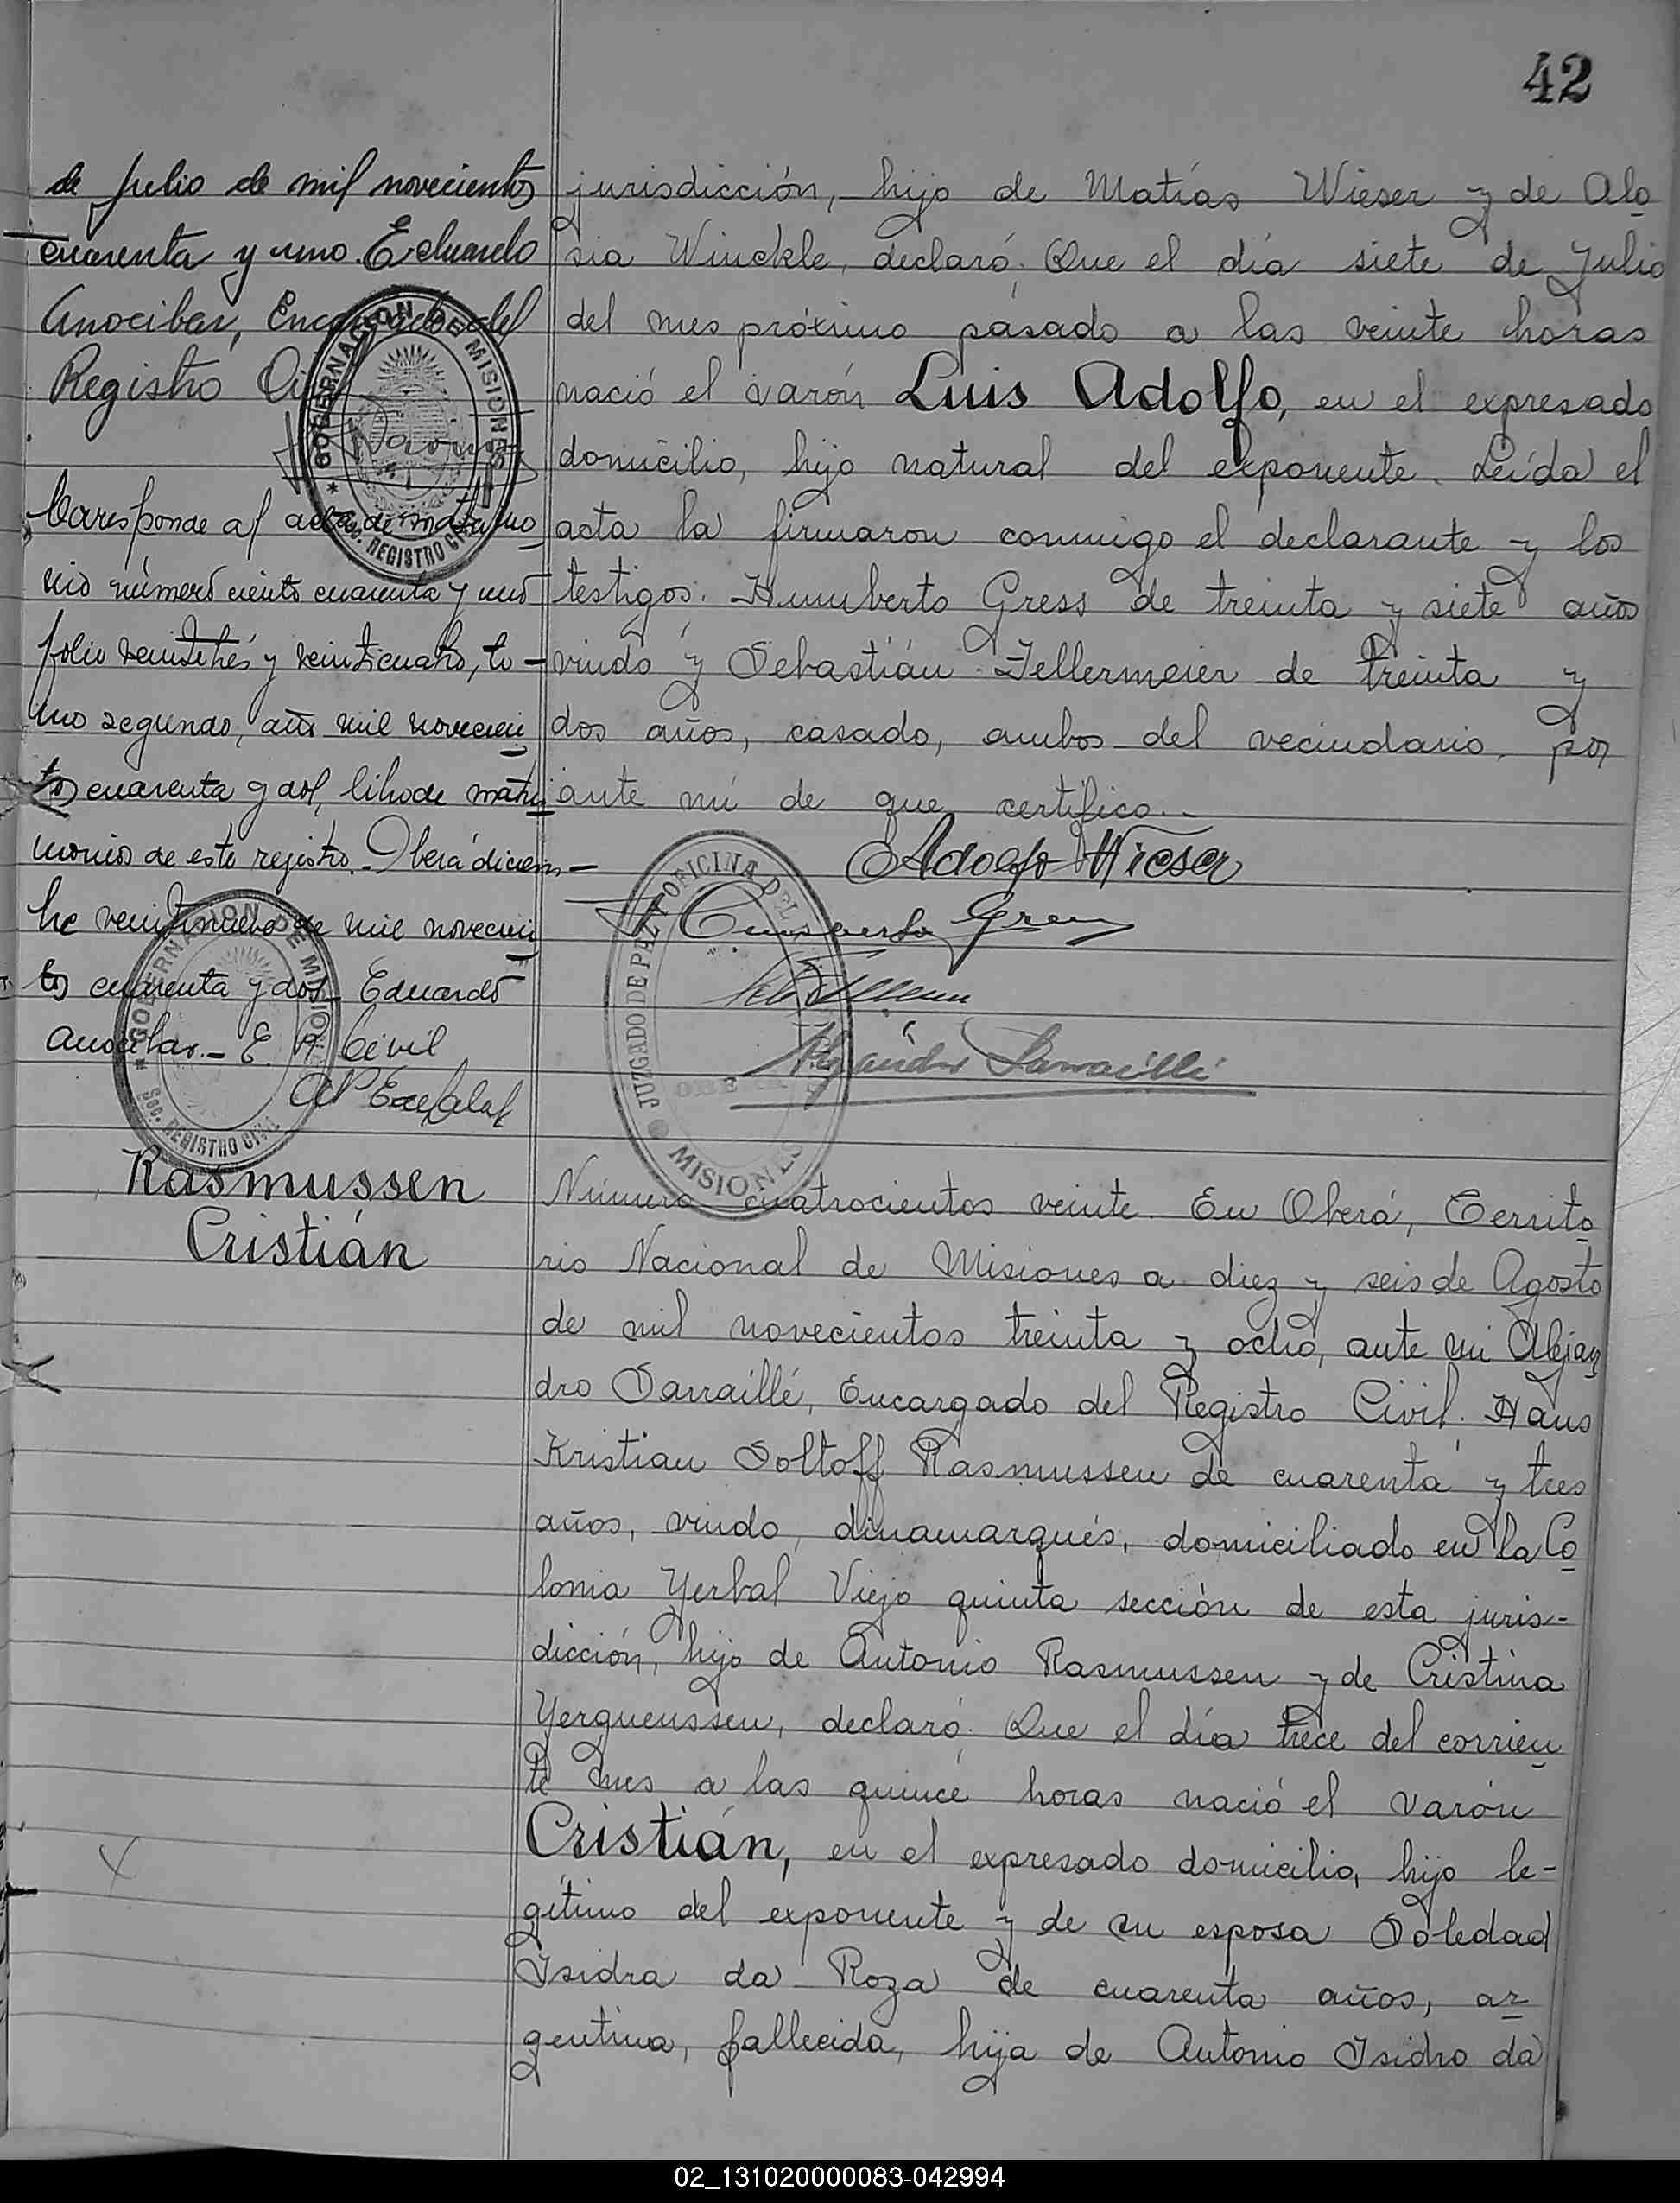 42
de Julio de mil novecientos
cuarenta y uno. Eduardo
Anocibar, Encargado del
Registro Civil
GOBERNACION DE MISIONES
Sec. REGISTRO CIVIL
Corresponde al acta de matrimo
nio número ciento cuarenta y uno
folio veintitrés y veinticuatro, to-
mo segundo, año mil novecien
tos cuarenta y dos, libro de matri
monios de este registro.- Oberá diciem-
bre veintinueve de mil novecien
tos cuarenta y dos- Eduardo
Anocibar.- E. R. Civil
GOBERNACION DE MISIONES
Sec. REGISTRO CIVIL
jurisdicción, hijo de Matías Wieser y de Alo
sia Winckle, declaró: Que el día siete de Julio
del mes próximo pasado a las veinte horas
nació el varón Luis Adolfo, en el expresado
domicilio, hijo natural del exponente. Leída el
acta la firmaron conmigo el declarante y los
testigos: Humberto Gress de treinta y siete años
viudo y Sebastián Fellermeier de treinta y
dos años, casado, ambos del vecindario, por
ante mí de que certifico.-
Adolfo Wieser
Humberto Gress
Alejandro Sarraillé
JUZGADO DE PAZ Y OFICINA DEL
OBERA
MISIONES
Rasmussen
Cristián
Número cuatrocientos veinte. En Oberá, Territo
rio Nacional de Misiones a diez y seis de Agosto
de mil novecientos treinta y ocho, ante mi Alejan
dro Sarraillé, Encargado del Registro Civil. Hans
Kristian Soltoff Rasmussen de cuarenta y tres
años, viudo, dinamarqués, domiciliado en la Co
lonia Yerbal Viejo quinta sección de esta juris-
dicción, hijo de Antonio Rasmussen y de Cristina
Yerguenssen, declaró: Que el día trece del corrien
te mes a las quince horas nació el varón
Cristián, en el expresado domicilio, hijo le-
gítimo del exponente y de su esposa Soledad
Isidra da Roza de cuarenta años, ar
gentina, fallecida, hija de Antonio Isidro da
02_131020000083-042994